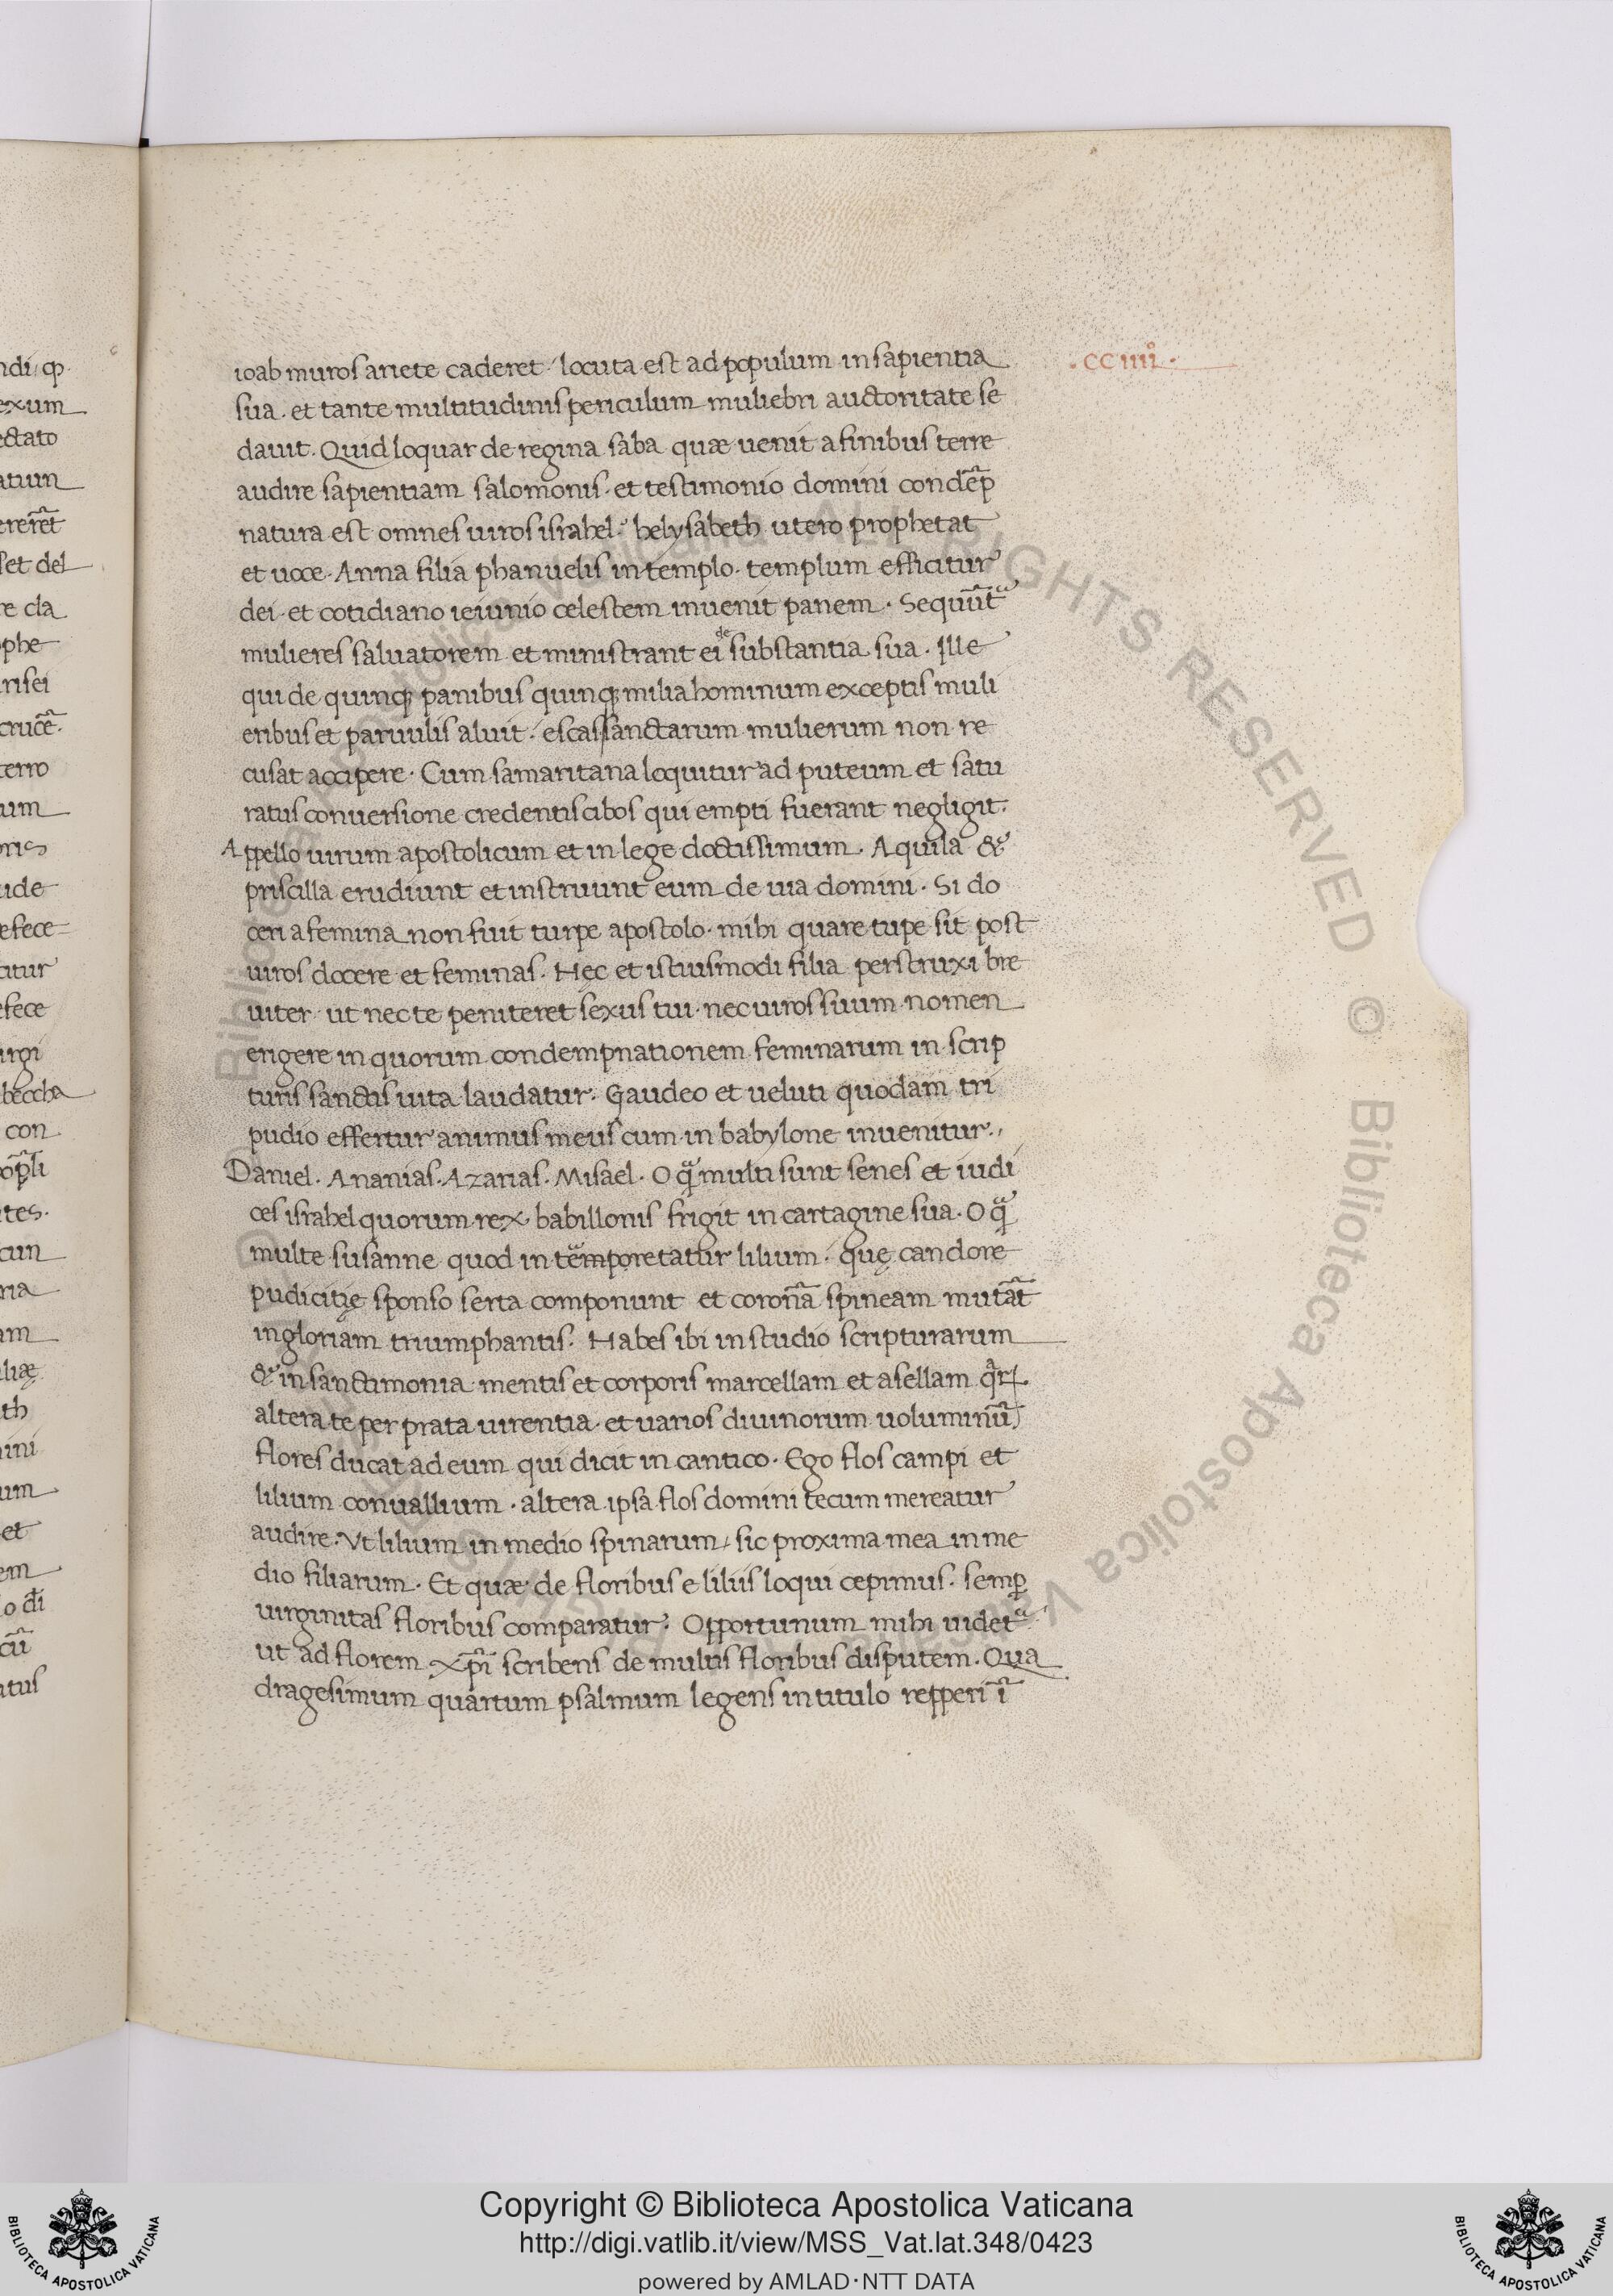 ndi, qꝫ
exum
ectato
atiun
ererēt
set del
re cla
phe
risei
crucē.
terro
um
oris
ude
efece
citur
efece
irgi
beccha
con
oρli
tes.
cun
ria
am
liæ
th
ini
um
et
em
o di
cū
atus
.CCIIII.
ioab muros ariete caderet. locuta est ad populum in sapientia
sua. et tante multitudinis periculum muliebri auctoritate se
davit. Quid loquar de regina saba quæ uenit a finibus terre
audire sapientiam salomonis. et testimonio domini condēp
natura est omnes uiros israhel. helysabeth utero prophetat
et uoce. Anna filia phanuelis in templo. templum efficitur
dei. et cotidiano ieiunio celestem inuenit panem. Sequūt̄
mulieres saluatorem et ministrant ei de substantia sua. Ille
qui de quinqꝫ panibus quinqꝫ milia hominum exceptis muli
eribus et paruulis aluit. escas sanctarum mulierum non re
cusat accipere. Cum samaritana loquitur ad puteum et satu
ratus conuersione credentis cibos qui empti fuerant negligit.
Appello uirum apostolicum et in lege doctissimum. Aquila &
priscilla erudiunt et instruunt eum de uia domini. Si do
ceri a femina non fuit turpe apostolo. mihi quare tupe sit post
uiros docere et feminas. Hęc et istiusmodi filia perstruxi bre
uiter ut nec te peniteret sexus tui. nec uiros suum nomen
erigere in quorum condempnationem feminarum in scrip
turis sanctis uita laudatur. Gaudeo et ueluti quodam tri
pudio effertur animus meus cum in babylone inuenitur.
Daniel. Ananias. Azarias. Misael. O q̄ multi sunt senes et iudi
ces israhel quorum rex babillonis frigit in cartagine sua. O q̄
multe susanne quod in temporetatur lilium. quę candore
pudicitię sponso serta componunt et coronā spineam mutāt
in gloriam triumphantis. Habes ibi in studio scripturarum
& in sanctimonia mentis et corporis marcellam et asellam q̄rꝝ
altera te per prata uirentia. et uarios diuinorum uoluminū
flores ducat ad eum qui dicit in cantico. Ego flos campi et
lilium conuallium. altera ipsa flos domini tecum mereatur
audire. Vt lilium in medio spinarum, sic proxima mea in me
dio filiarum. Et quæ de floribus e liliis loqui cepimus. semꝑ
uirginitas floribus comparatur. Opportunum mihi uidet̄
ut ad florem xp̄i scribens de multis floribus disputem. Qua
dragesimum quartum psalmum legens in titulo repperi ī
Copyright © Biblioteca Apostolica Vaticana
http://digi.vatlib.it/view/MSS_Vat.lat.348/0423
powered by AMLAD·NTT DATA